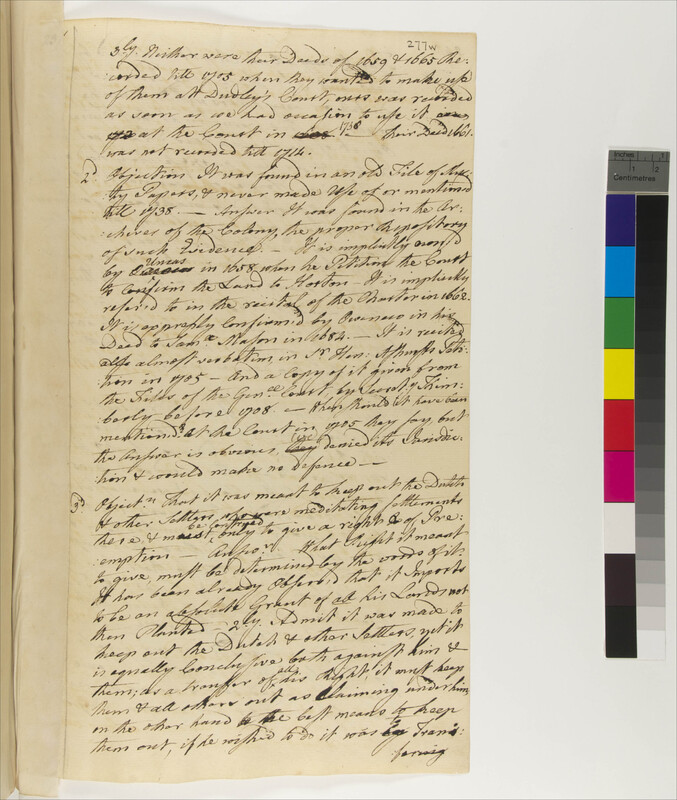 277w
3ly. Neither were their Deeds of 1659 & 1665 Re:
:corded till 1705 when they wanted to make use
of them att Dudley's Court, ours was recorded
as soon as we had occasion to use it
at the Court in 1738 — their Deed 1661.
was not recorded till 1714.
2d Objection It was found in an old File of
:ty Papers, & never made Use of or mentioned
till 1738. — Answer It was found in the Ar:
:chives of the Colony, the proper Repository
of such Evidence. — It is implicitly own'd
by Uncas in 1658 when he Petition the Court
to Confirm the Land to Horton — It is implicitly
refer'd to in the recital of the Charter in 1662.
It is expressly Confirmed by Owaneco in his
Deed to Saml Mason in 1684. — It is recited
also almost verbatim in Sr Hen: Ashursts Peti:
:tion in 1705 — And a Copy of it given from
the Files of the Genll Court by Secrety Kim:
:berly before 1708 — When should it have been
mention'd? at the Court in 1705 they say, but
the Answer is obvious, We denied its Jurisdic:
:tion & would make no defence —
3d Object:n That it was meant to keep out the Dutch
& other Settlers, who were meditating Settlements
there, & must be construed only to give a right of Pre:
:emption — Answr. What Right it meant
to give, must be determined by the words of it.
It has been already Observ'd that it Imports
to be an absolute Grant of all his Lands not
then Planted — 2ly. Admit it was made to
keep out the Dutch & other Settlers, yet it
is equally Conclusive both against him &
them; as a transfer of all his Right, it must keep
them & all others out as Claiming under him
on the other hand the best means to keep
them out, if he wished to do it was by Trans:
:fering